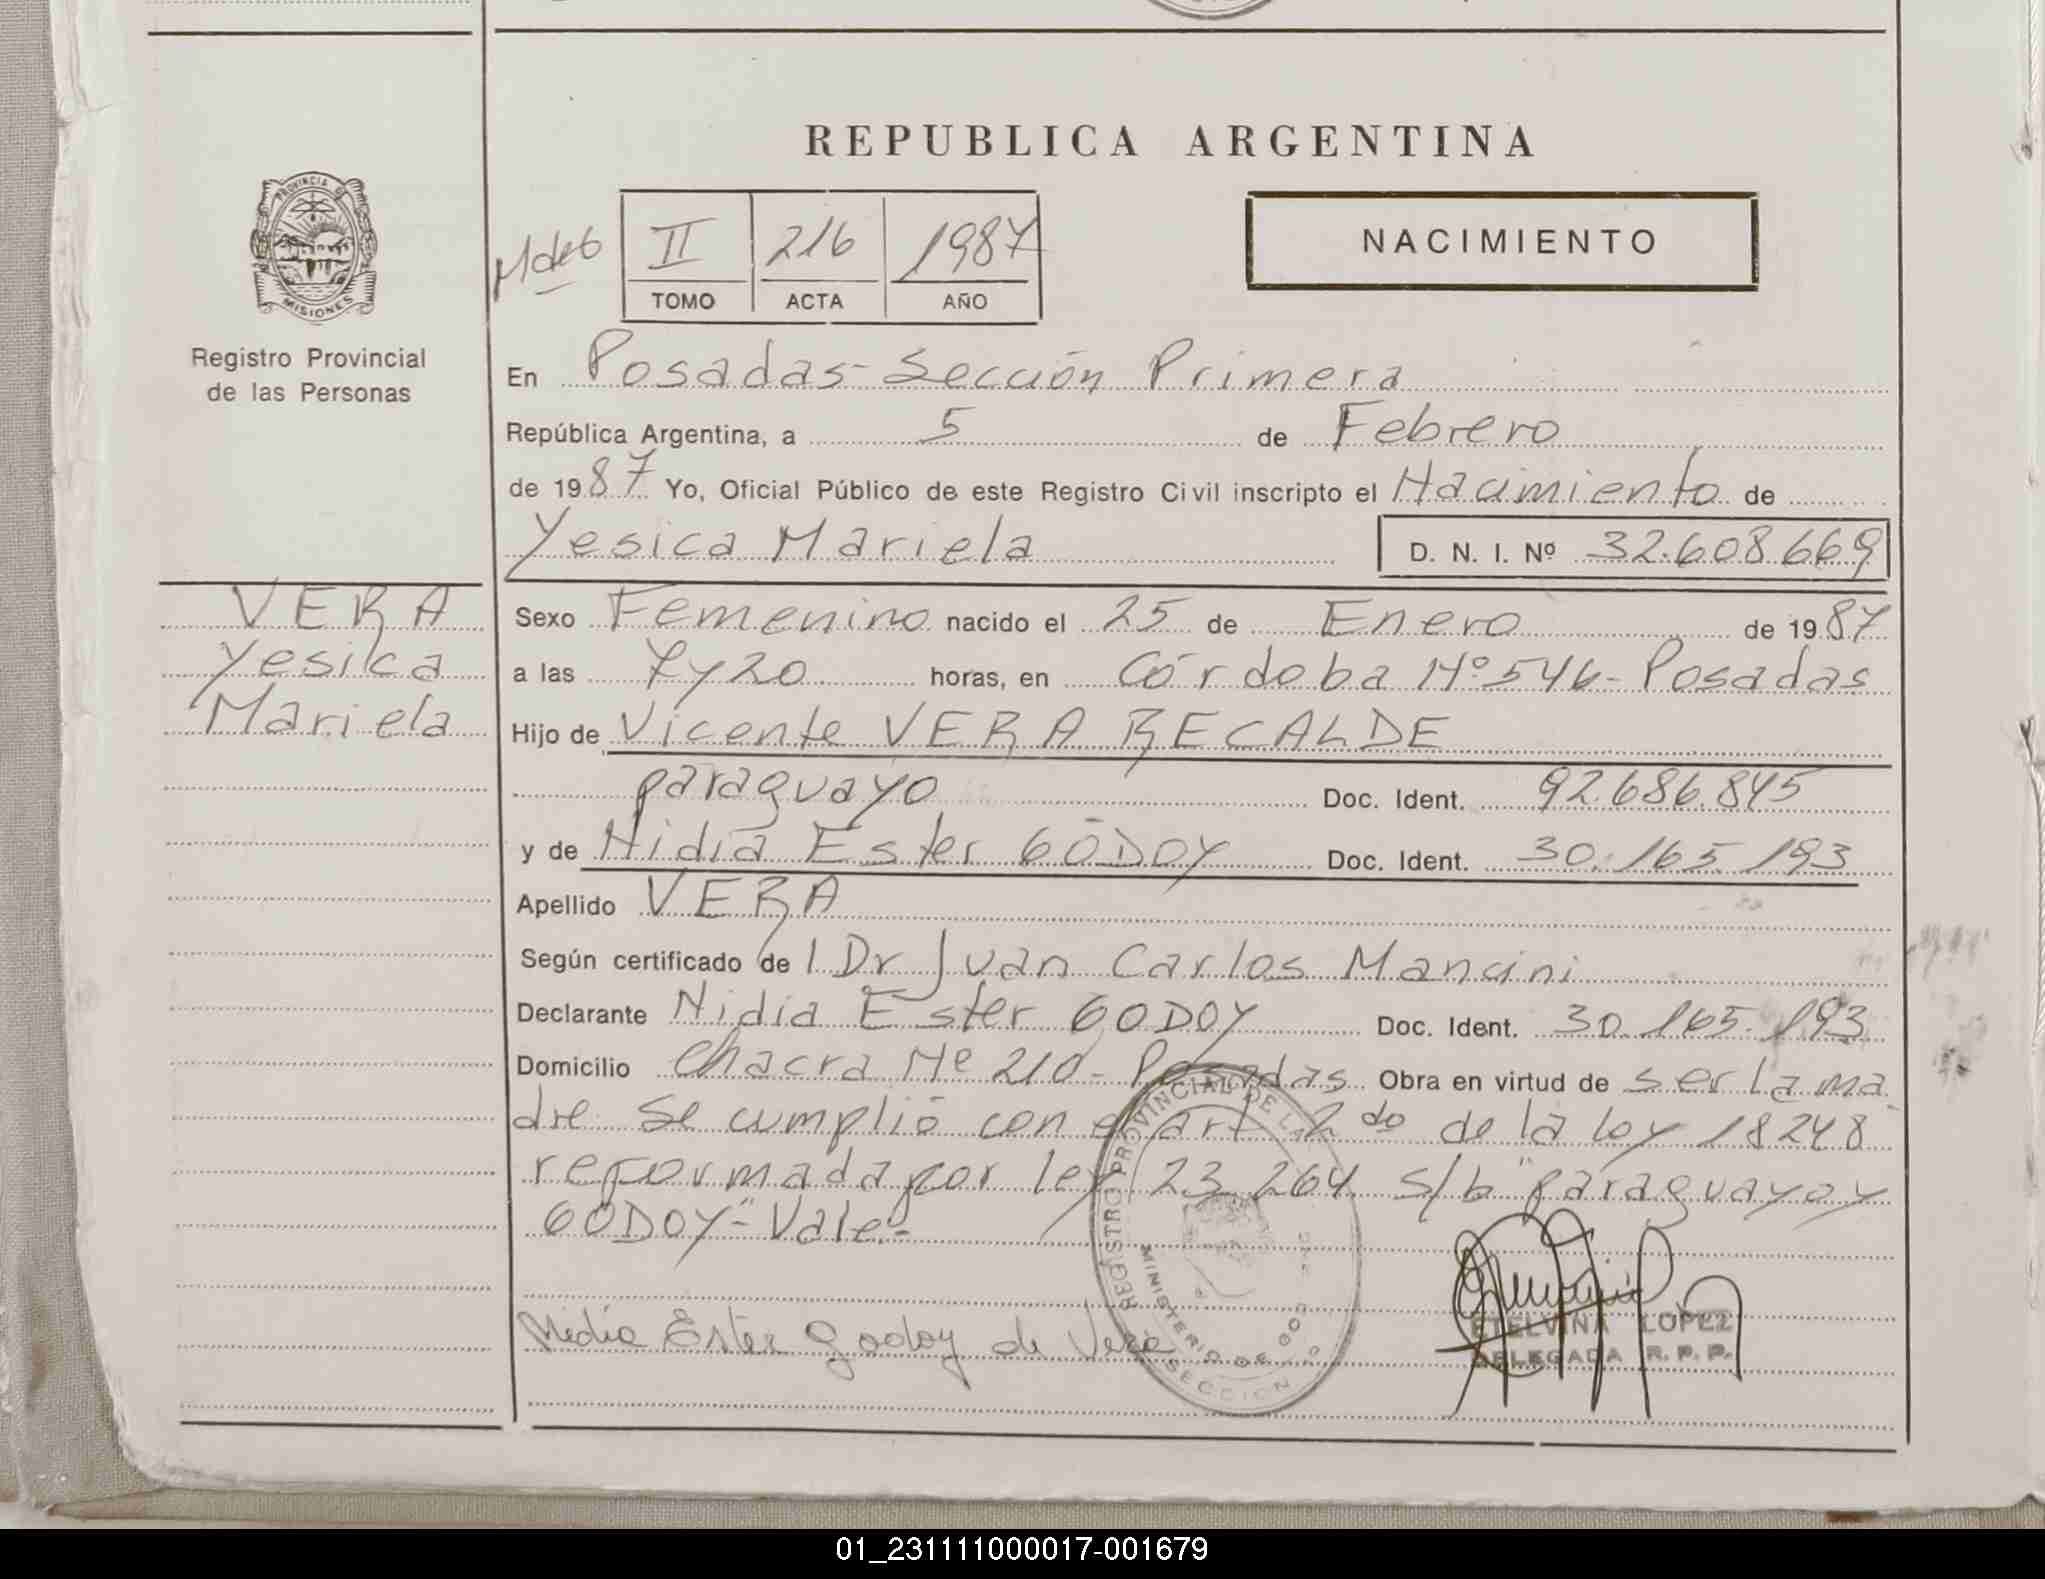 REPUBLICA ARGENTINA
PROVINCIA DE
MISIONES
Registro Provincial
de las Personas
II 216 1987
TOMO ACTA AÑO
NACIMIENTO
En Posadas-Sección Primera
República Argentina, a 5 de Febrero
de 1987 Yo, Oficial Público de este Registro Civil inscripto el Nacimiento de
Yesica Mariela D. N. I. Nº 32.608.669
VERA
Yesica
Mariela
Sexo Femenino nacido el 25 de Enero de 1987
a las 7y20 horas, en Córdoba Nº546- Posadas
Hijo de Vicente VERA RECALDE
paraguayo Doc. Ident. 92.686.845
y de Nidia Ester GODOY Doc. Ident. 30.165.193
Apellido VERA
Según certificado de l Dr Juan Carlos Mancini
Declarante Nidia Ester GODOY Doc. Ident. 30.165.193
Domicilio Chacra Nº 210- Posadas Obra en virtud de ser la ma
dre. Se cumplió con el art 2do de la ley 18248
reformada por ley 23.264 s/b "paraguayo y
GODOY"-Vale.-
REGISTRO PROVINCIAL DE LA
MINISTERIO DE GOB
SECCION
Nidia Ester Godoy de Vera
ETELVINA LOPEZ
DELEGADA R. P. P.
01_231111000017-001679